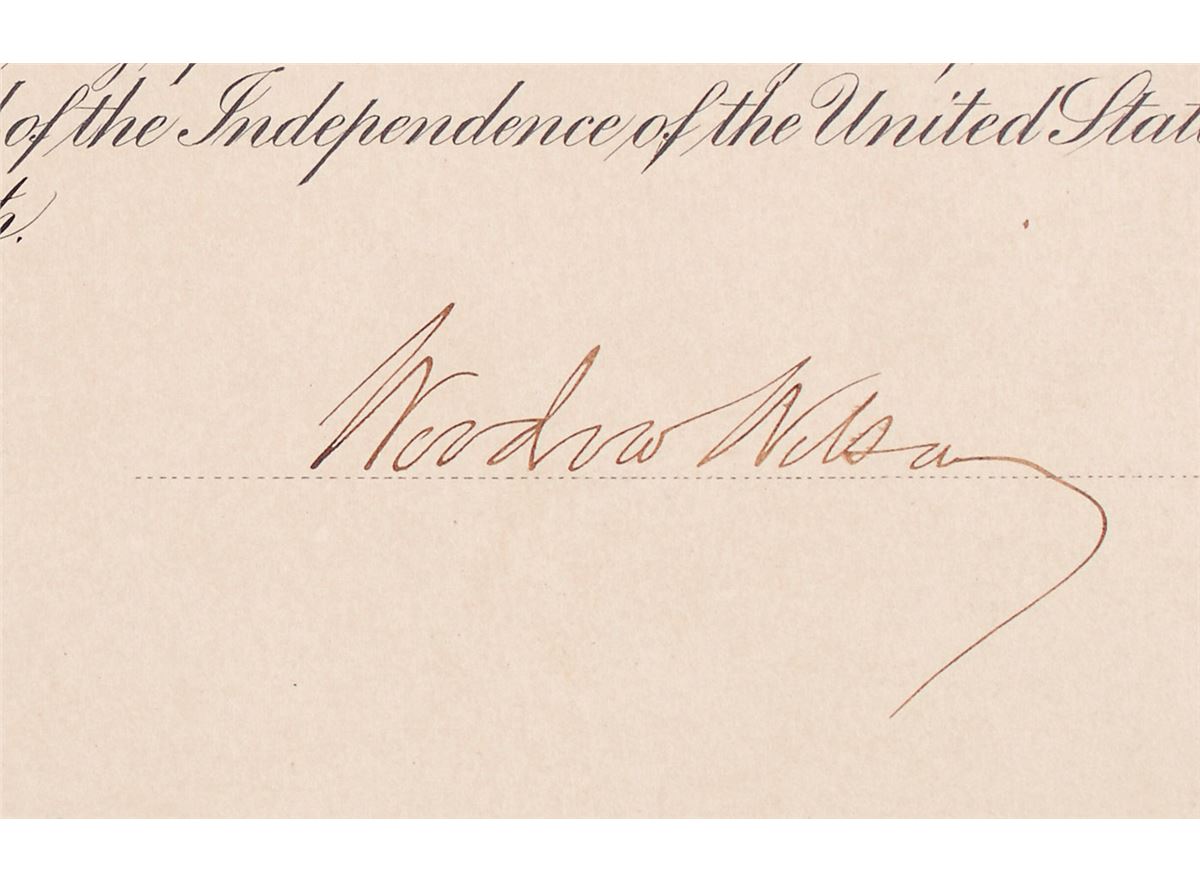 of the Independence of the United Stat
Woodrow Wilson